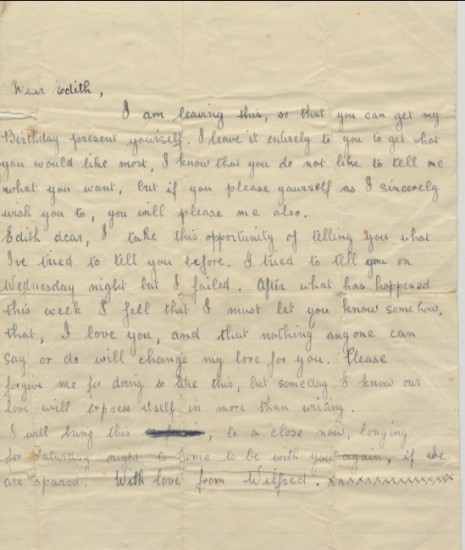 Dear Edith,
I am leaving this, so that you can get my
Birthday present yourself. I leave it entirely to you to get what
you would like most, I know that you do not like to tell me
what you want, but if you please yourself as I sincerely
wish you to, you will please me also.
Edith dear, I take this opportunity of telling you what
I've tried to tell you before. I tried to tell you on
Wednesday night but I failed. After what has happened
this week I fell that I must let you know somehow,
that, I love you, and that nothing anyone can
say or do will change my love for you. Please
forgive me for doing so like this, but someday I know our
love will express itself in more than writing.
I will bring this to a close now, longing
for Saturday night to come to be with you again, if we
are spared. With love from Wilfred. xxxxxxxxxxxxxx